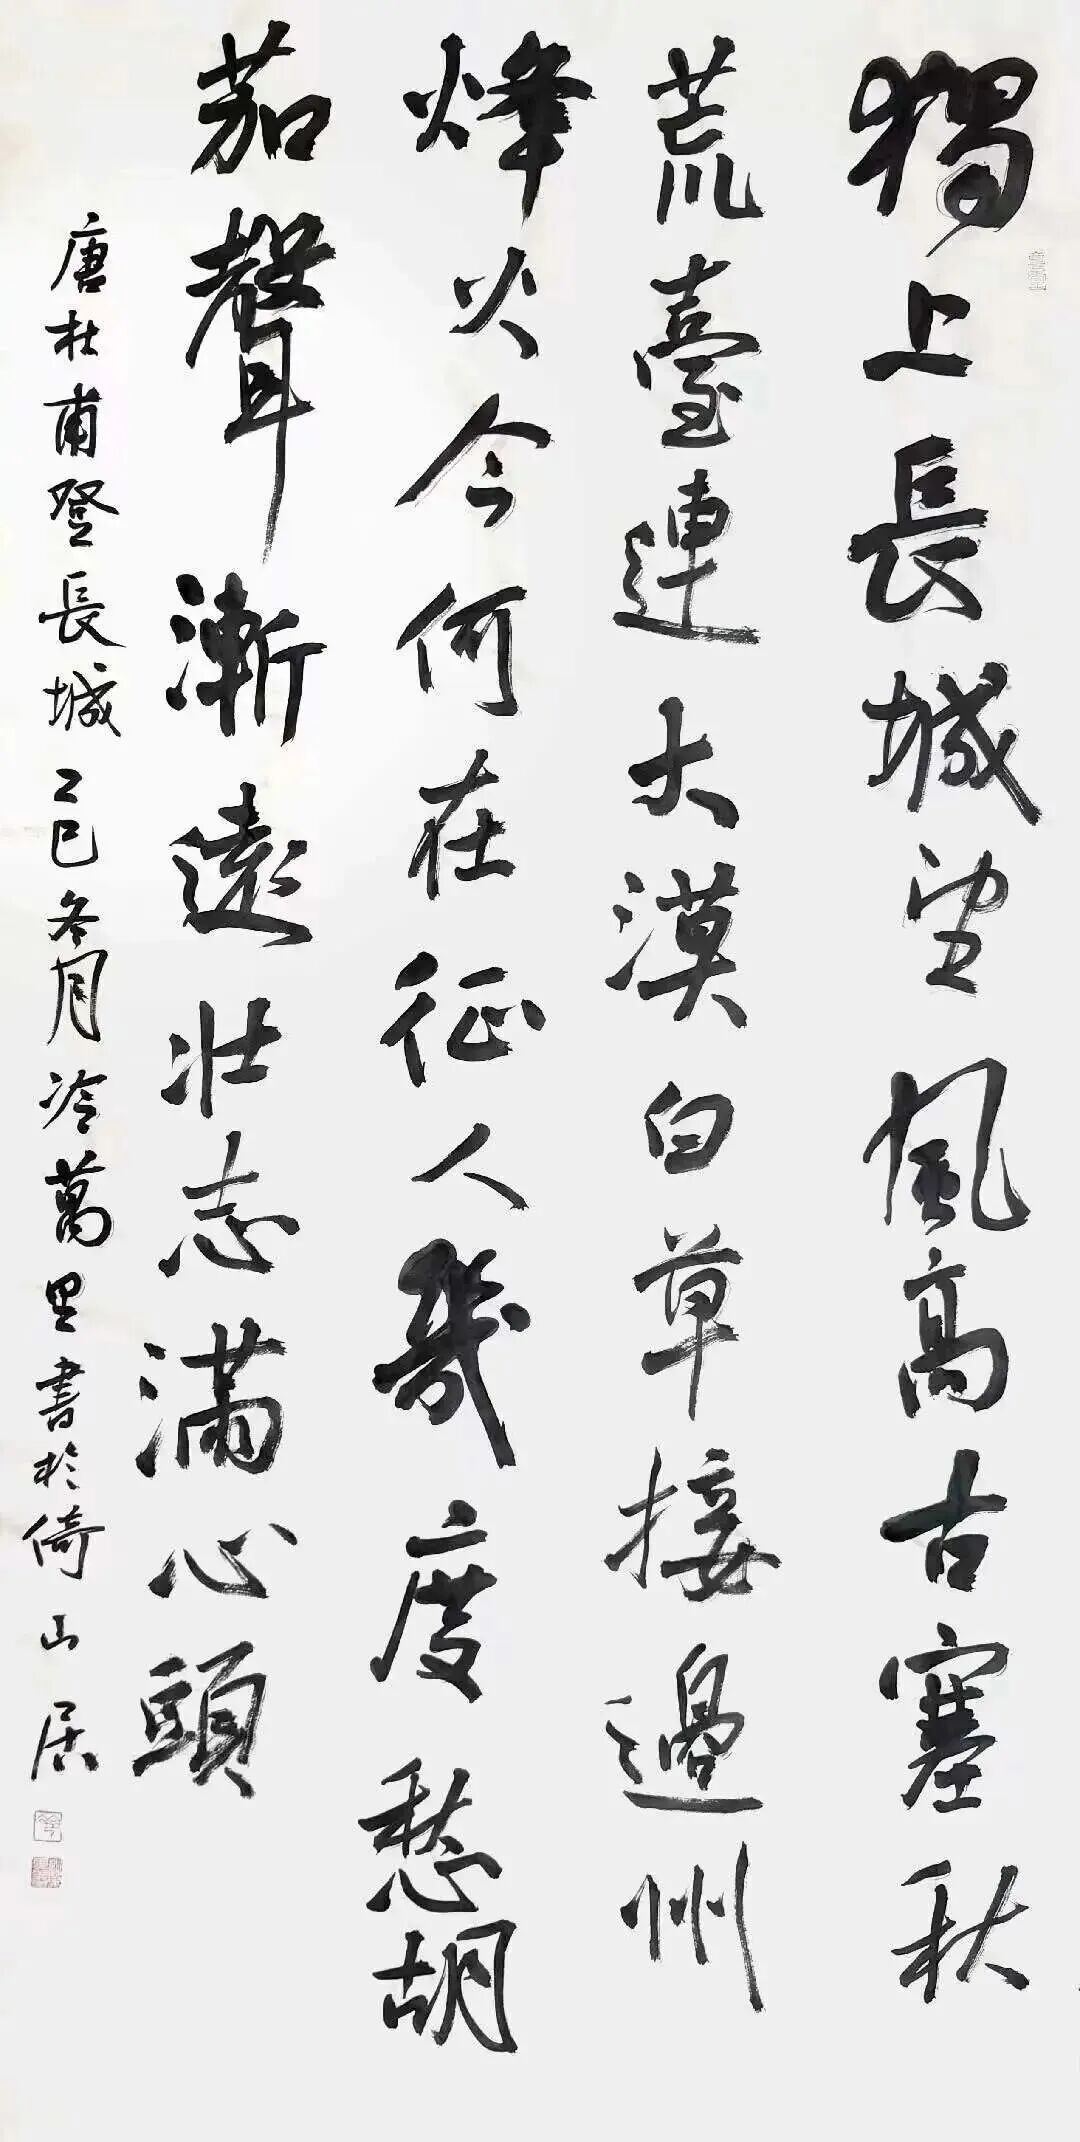 獨上長城望風高古塞秋
荒臺連大漠白草接邊州
烽火今何在征人幾度愁胡
茄聲漸遠壯志滿心頭
唐杜甫登長城乙巳冬月冷萬里書於倚山居